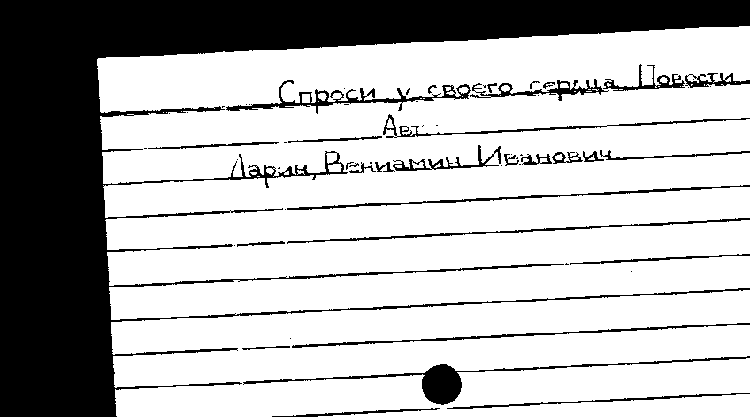 Спроси у своего сердца. Повести
Авт.:
Ларин, Вениамин Иванович.